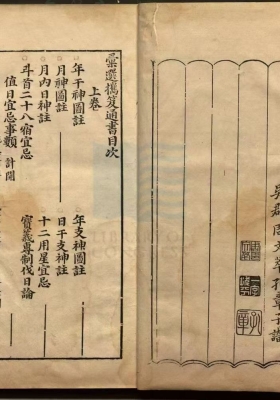 吳郡周文萃孔章子
彙選攜笈通書目次
上卷
年干神圖註
年支神圖註
月神圖註
日干支神註
月內日神註
十二用星宜忌
斗首二十八宿宜忌
寶義專制伐日論
值日宜忌事類 計開